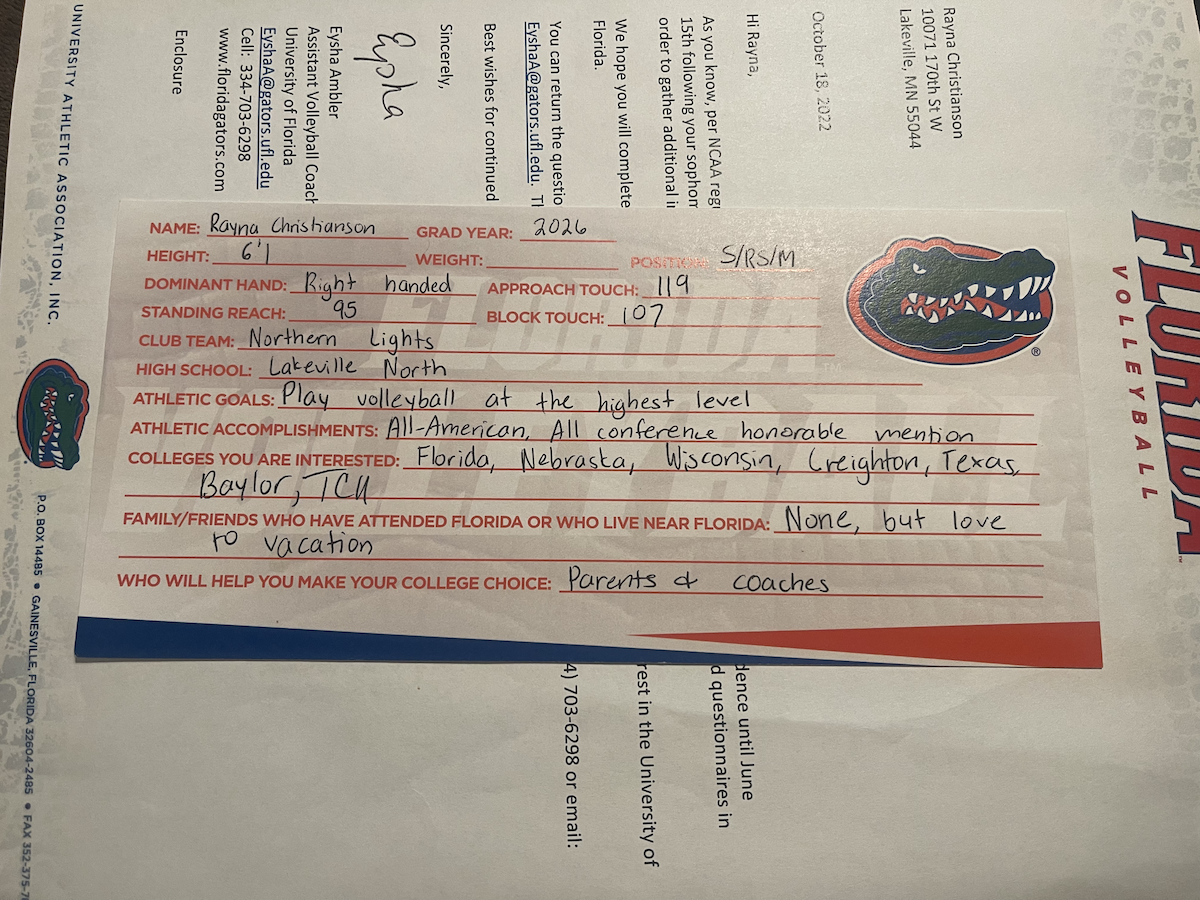 FLORIDA
VOLLEYBALL
Rayna Christianson
10071 170th St W
Lakeville, MN 55044
October 18, 2022
Hi Rayna,
As you know, per NCAA
dence until June
15th following your
d questionnaires in
order to gather additional
We hope you will complete
rest in the University of
Florida.
You can return the
4) 703-6298 or email:
EyshaA@gators.ufl.edu.
Best wishes for continued
Sincerely,
Eysha
Eysha Ambler
Assistant Volleyball Coach
University of Florida
EyshaA@gators.ufl.edu
Cell: 334-703-6298
www.floridagators.com
Enclosure
UNIVERSITY ATHLETIC ASSOCIATION, INC.
P.O. BOX 14485 • GAINESVILLE, FLORIDA 32604-2485 • FAX 352-375-
NAME: Rayna Christianson GRAD YEAR: 2026
HEIGHT: 6'1 WEIGHT: POSITION: S/RS/M
DOMINANT HAND: Right handed APPROACH TOUCH: 119
STANDING REACH: 95 BLOCK TOUCH: 107
CLUB TEAM: Northern Lights
HIGH SCHOOL: Lakeville North
ATHLETIC GOALS: Play volleyball at the highest level
ATHLETIC ACCOMPLISHMENTS: All-American, All conference honorable mention
COLLEGES YOU ARE INTERESTED: Florida, Nebraska, Wisconsin, Creighton, Texas,
Baylor, TCU
FAMILY/FRIENDS WHO HAVE ATTENDED FLORIDA OR WHO LIVE NEAR FLORIDA: None, but love
to vacation
WHO WILL HELP YOU MAKE YOUR COLLEGE CHOICE: Parents & coaches
FLORIDA
VOLLEYBALL